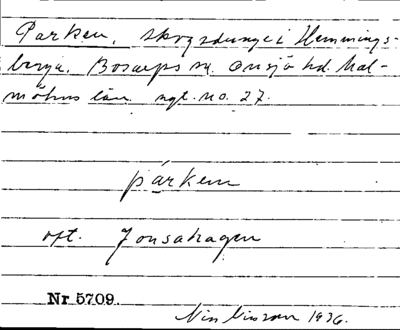 Parken, skogsdunge i Hemmings-
berga. Bosarps sn. Onsjö hd. Mal-
möhus län. sgt. no. 27.
parken
oft. Jonsahagen
Nr 5709.
Nin Ninson 1936.